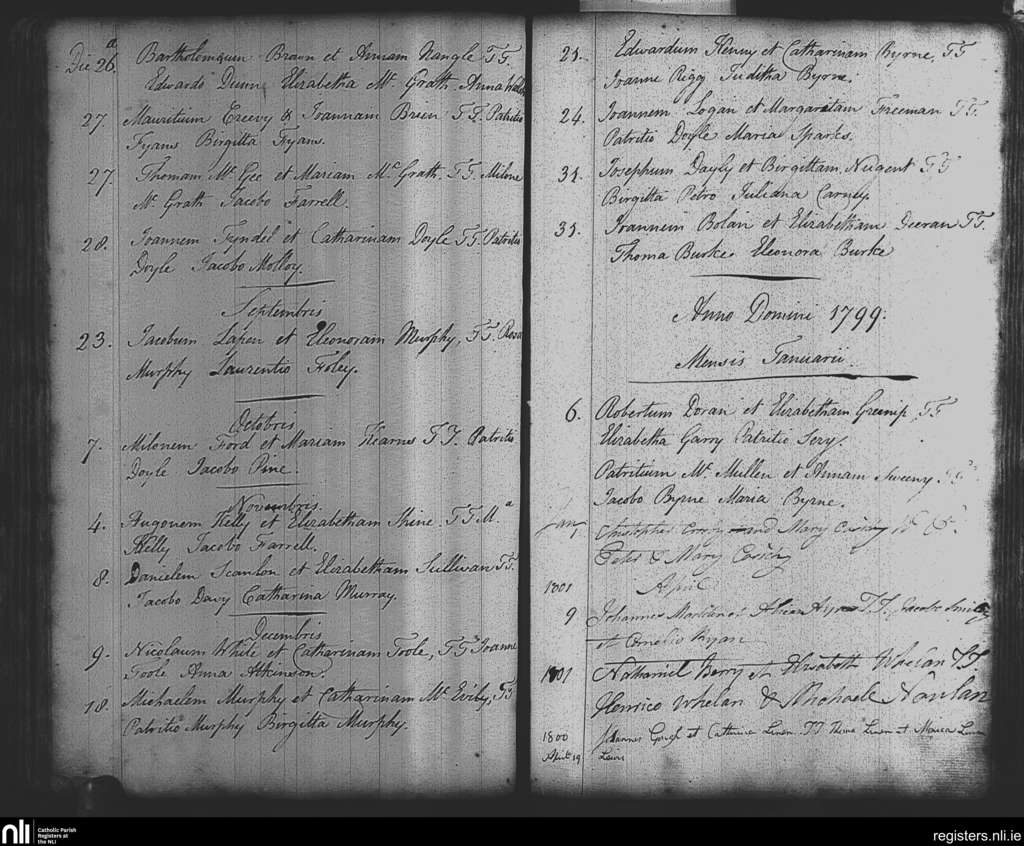 Die 26.a Bartholomeum Braun et Annam Nangle TT
Edwardo Dunn Elizabetha Mc. Grath Anna
27. Mauritium Creevy & Joannam Brien TT. Patritio
Fyans Birgitta Fyans.
27. Thomam Mc. Gee et Mariam Mc. Grath. TT. Milone
Mc. Grath Jacobo Farrell.
28. Joannem Tyndel et Catharinam Doyle TT. Patritio
Doyle Jacobo Molloy.
Septembris
23. Jacobum Lapen et Eleonoram Murphy, TT. Rosa
Murphy Laurentio Foley.
Octobris
7. Milonem Ford et Mariam Kearns TT. Patritio
Doyle Jacobo Pine.
Novembris.
4. Hugonem Kelly et Elizabetham Shine. TT. M.a
Kelly Jacobo Farrell.
8. Danielem Scanlon et Elizabetham Sullivan TT.
Jacobo Davy Catharina Murray.
Decembris
9. Nicolaum White et Catharinam Toole, TT Joanne
Toole Anna Atkinson.
18. Michaelem Murphy et Catharinam Mc. Evily, TT
Patritio Murphy Birgitta Murphy.
21. Edwardum Kenny et Catharinam Byrne, TT
Joanne Rigg Juditha Byrne.
24. Joannem Logan et Margaretam Freeman TT
Patritio Doyle Maria Sparks.
31. Josephum Dayly et Birgittam Nugent TT
Birgitta Petro Juliana Carney.
31. Joannem Bolan et Elizabetham Deeran TT.
Thoma Burke Eleonora Burke
Anno Domini 1799.
Mensis Januarii
6. Robertum Doran et Elizabetham TT
Elizabetha Garry Patritio
Patritium Mc. Mullen et Annam Sweeny TT
Jacobo Byrne Maria Byrne.
Jany
1 Christopher and Mary
Peter & Mary
1801 April
9 Johannes et Alicia TT. Jacobo
et Cornelio Ryan
1801 Nathaniel Berry et Elisabeth Whelan TT
Henrico Whelan & Michaele Nowlan
1800 Johannes Gough et Catherina TT Thoma et Monica
April 19 Lewis
nli Catholic Parish
Registers at
the NLI
registers.nli.ie